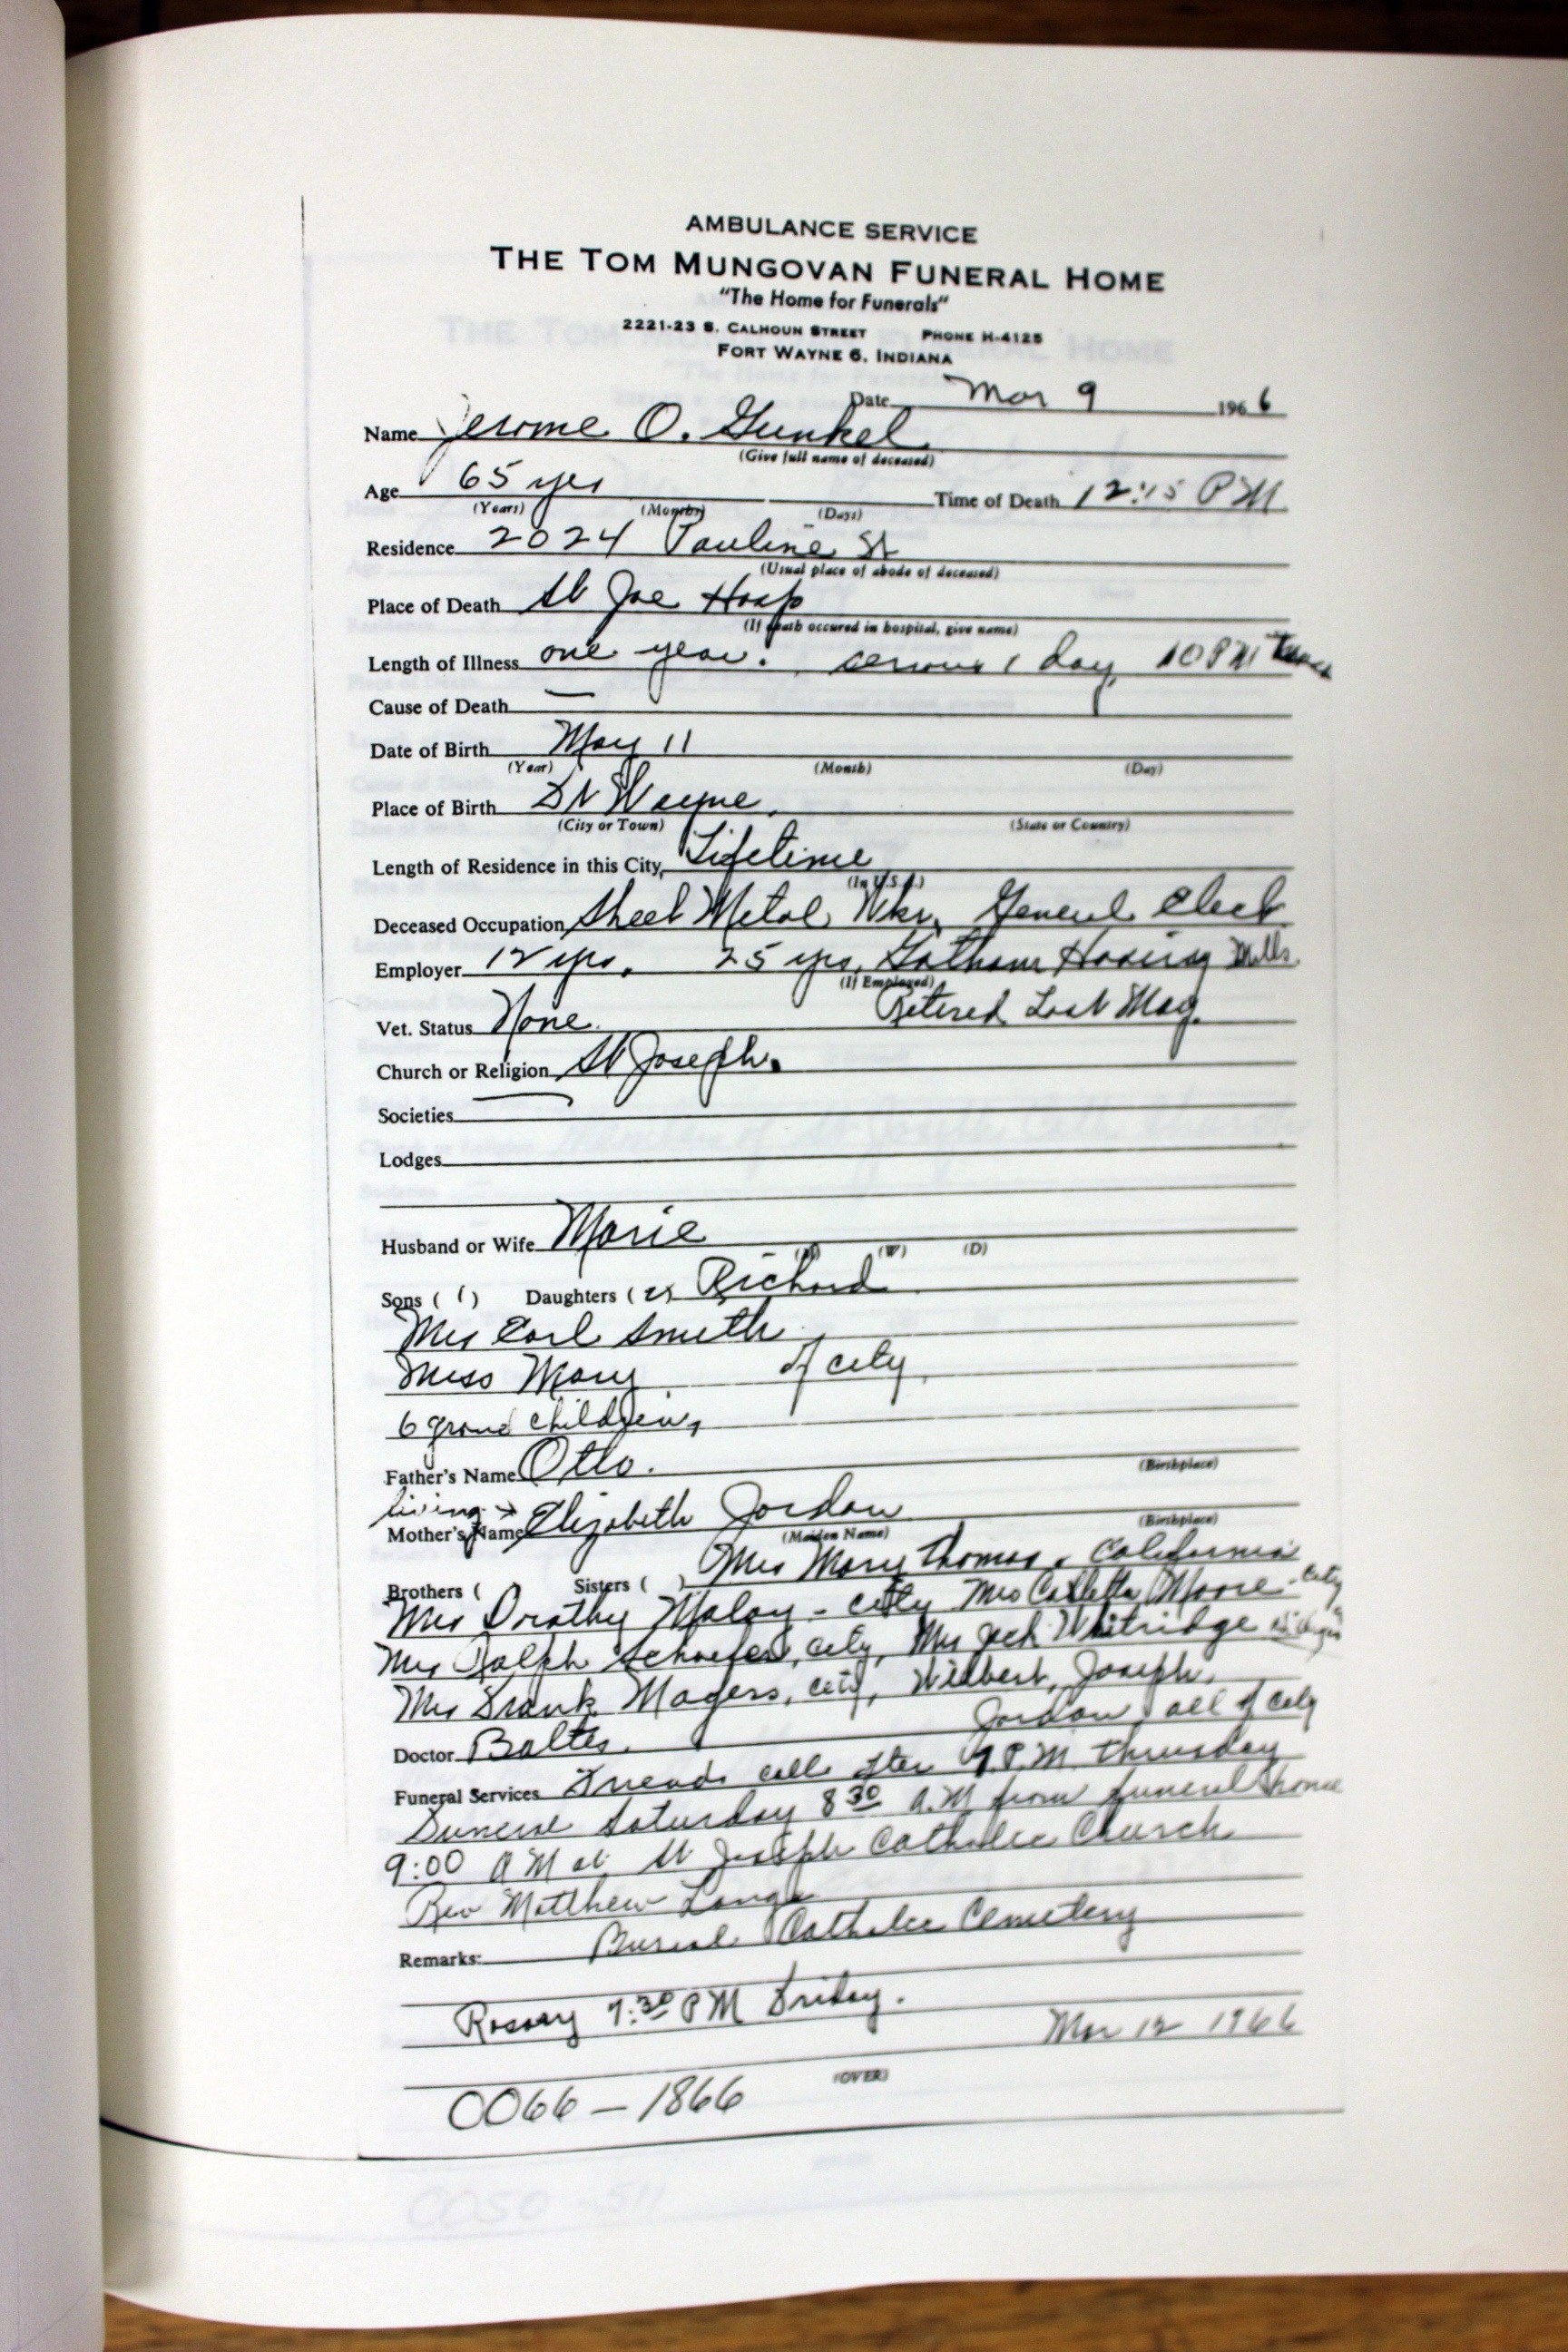 AMBULANCE SERVICE
THE TOM MUNGOVAN FUNERAL HOME
"The Home for Funerals"
2221-23 S. CALHOUN STREET PHONE H-4125
FORT WAYNE 6, INDIANA
Date Mar 9 1966
Name Jerome O. Gunkel
(Give full name of deceased)
Age 65 yrs Time of Death 12:15 PM
(Years) (Months) (Days)
Residence 2024 Pauline St
(Usual place of abode of deceased)
Place of Death St Joe Hosp
(If death occured in hospital, give name)
Length of Illness one year. serious 1 day, 10 PM
Cause of Death —
Date of Birth May 11
(Year) (Month) (Day)
Place of Birth Ft Wayne,
(City or Town) (State or Country)
Length of Residence in this City, Lifetime
(In U.S.A.)
Deceased Occupation Sheet Metal Wkr, General Elect
Employer 12 yrs. 25 yrs, Gotham Hosiery Mills
(If Employed)
Vet. Status None. Retired Last May.
Church or Religion St Joseph.
Societies
Lodges
Husband or Wife Marie
(W) (D)
Sons (1) Daughters (2) Richard
Mrs Earl Smith
Miss Mary of city,
6 grand children,
Father's Name Otto.
(Birthplace)
living →
Mother's Name Elizabeth Jordan
(Maiden Name) (Birthplace)
Brothers ( Sisters ( ) Mrs Mary Thomas, California
Mrs Drothy Maloy - city Mrs Colletta Moore - city
Mrs Ralph Schaefer, city, Mrs Jack Whitridge
Mrs Frank Magers, city, Wilbert, Joseph,
Jordan, all of city
Doctor Baltes.
Funeral Services Friends call after 7 P.M. Thursday
Funeral Saturday 8 30 A.M from funeral home
9:00 AM at St Joseph Catholic Church
Rev Matthew Lange
Remarks: Burial Catholic Cemetery
Rosary 7:30 PM Friday.
Mar 12 1966
(OVER)
0066 - 1866